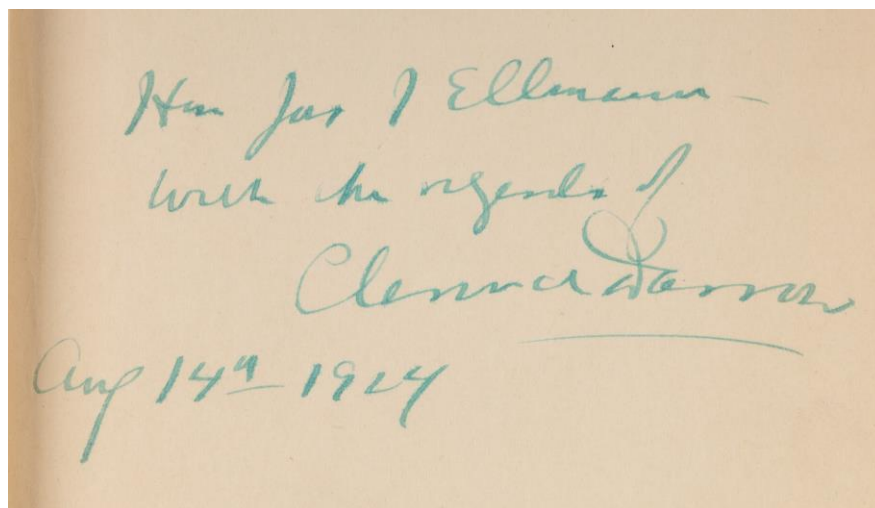 Hon Jas I Ellmann –
with the regards of
Clarence Darrow
Aug 14th 1924